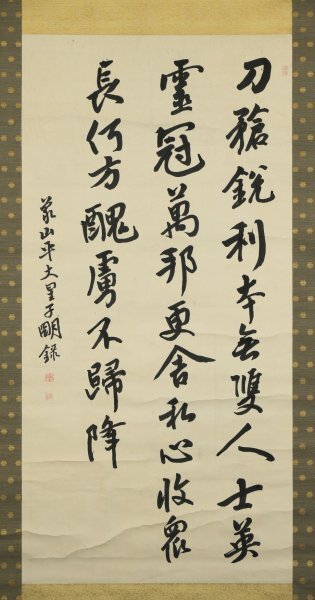 刀槍銳利本無雙人士英
靈冠萬邦更舍私心收眾
長何方醜虜不歸降
蒙山平大星子明錄